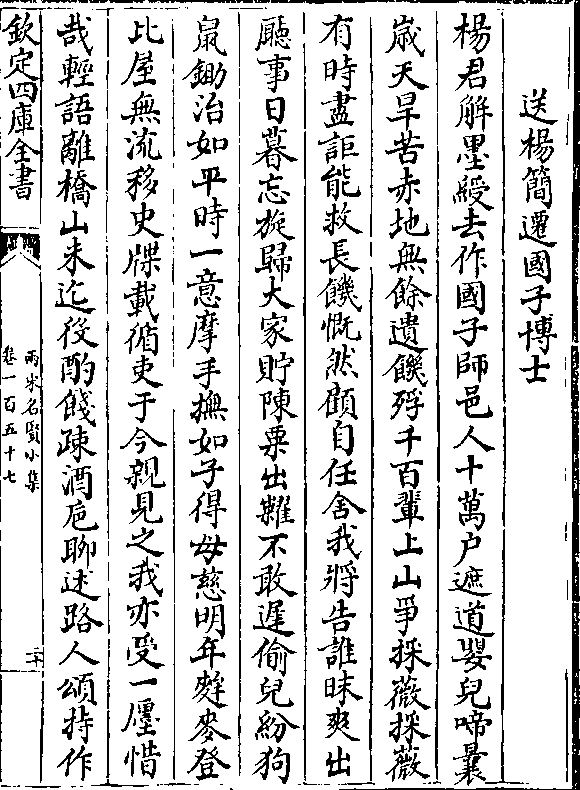 送楊簡遷國子博士
楊君解墨綬去作國子師邑人十萬户遮道嬰兒啼曩
嵗天旱苦赤地無餘遺饑殍千百輩上山爭採薇採薇
有時盡詎能救長饑慨然顧自任舍我將告誰昧爽出
廳事日暮忘旋歸大家貯陳粟出糶不敢遲偷兒紛狗
鼠鋤治如平時一意摩手撫如子得母慈明年麰麥登
比屋無流移史牒載循吏于今親見之我亦受一廛惜
哉輕語離橋山未迄役酌餞疎酒巵聊述路人頌持作
欽定四庫全書
兩宋名賢小集
卷一百五十七
二十